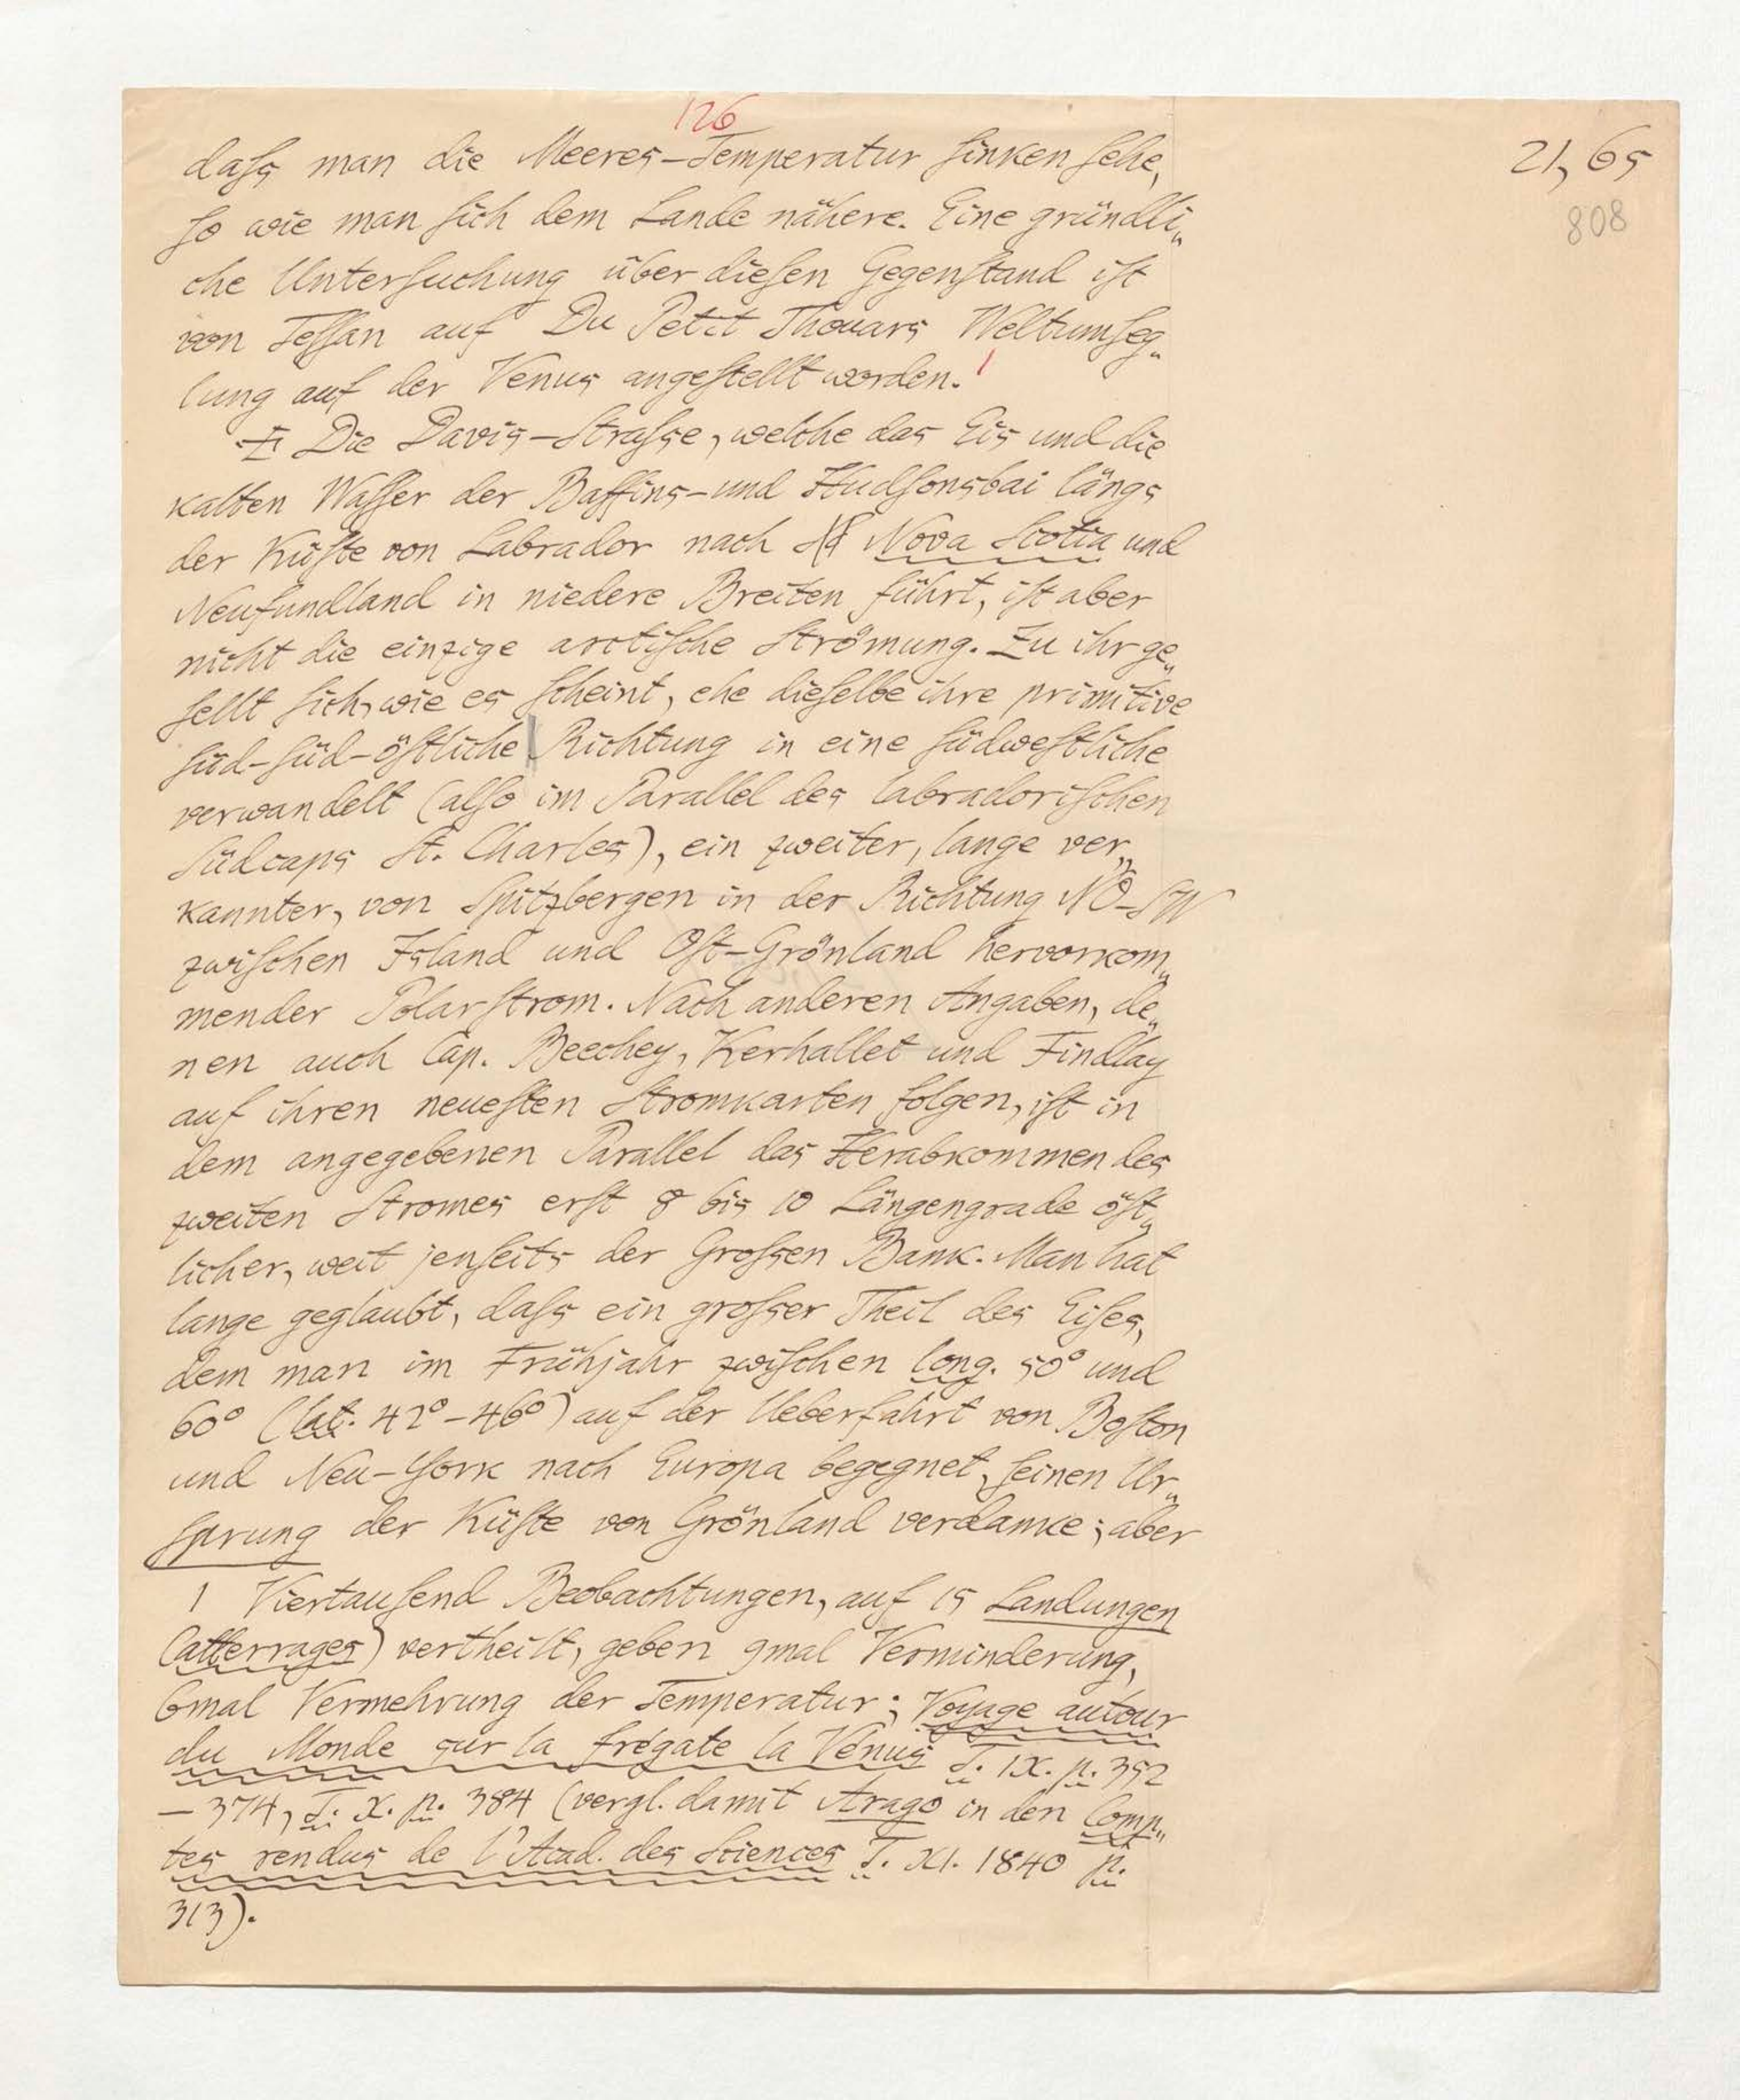 126
21, 65
808
dass man die Meeres-Temperatur sinken sehe,
so wie man sich dem Lande nähere. Eine gründli„
che Untersuchung über diesen Gegenstand ist
von Tessan auf Du Petit Thouars Weltumseg„
lung auf der Venus angestellt worden.¹
Die Davis-Strasse, welche das Eis und die
kalten Wasser der Baffins- und Hudsonsbai längs
der Küste von Labrador nach Nova Scotia und
Neufundland in niedere Breiten führt, ist aber
nicht die einzige arctische Strömung. Zu ihr ge„
sellt sich, wie es scheint, ehe dieselbe ihre primitive
süd-süd-östliche Richtung in eine südwestliche
verwandelt (also im Parallel des labradorischen
Südcaps St. Charles), ein zweiter, lange ver„
kannter, von Spitzbergen in der Richtung NO-SW
zwischen Island und Ost-Grönland hervorkom„
mender Polarstrom. Nach anderen Angaben, de„
nen auch Cap. Beechey, Kerhallet und Findlay
auf ihren neuesten Stromkarten folgen, ist in
dem angegebenen Parallel das Herabkommen des
zweiten Stromes erst 8 bis 10 Längengrade öst„
licher, weit jenseits der Grossen Bank. Man hat
lange geglaubt, dass ein grosser Theil des Eises,
dem man im Frühjahr zwischen long. 50° und
60° (lat. 42°-46°) auf der Ueberfahrt von Boston
und Neu-York nach Europa begegnet, seinen Ur„
sprung der Küste von Grönland verdanke; aber
1 Viertausend Beobachtungen, auf 15 Landungen
(atterrages) vertheilt, geben 9mal Verminderung,
6mal Vermehrung der Temperatur; Voyage autour
du Monde sur la frégate la Vénus T. IX. p. 352
-374, T. X. p. 384 (vergl. damit Arago in den Comp„
tes rendus de l'Acad. des Sciences T. XI. 1840 p.
313).